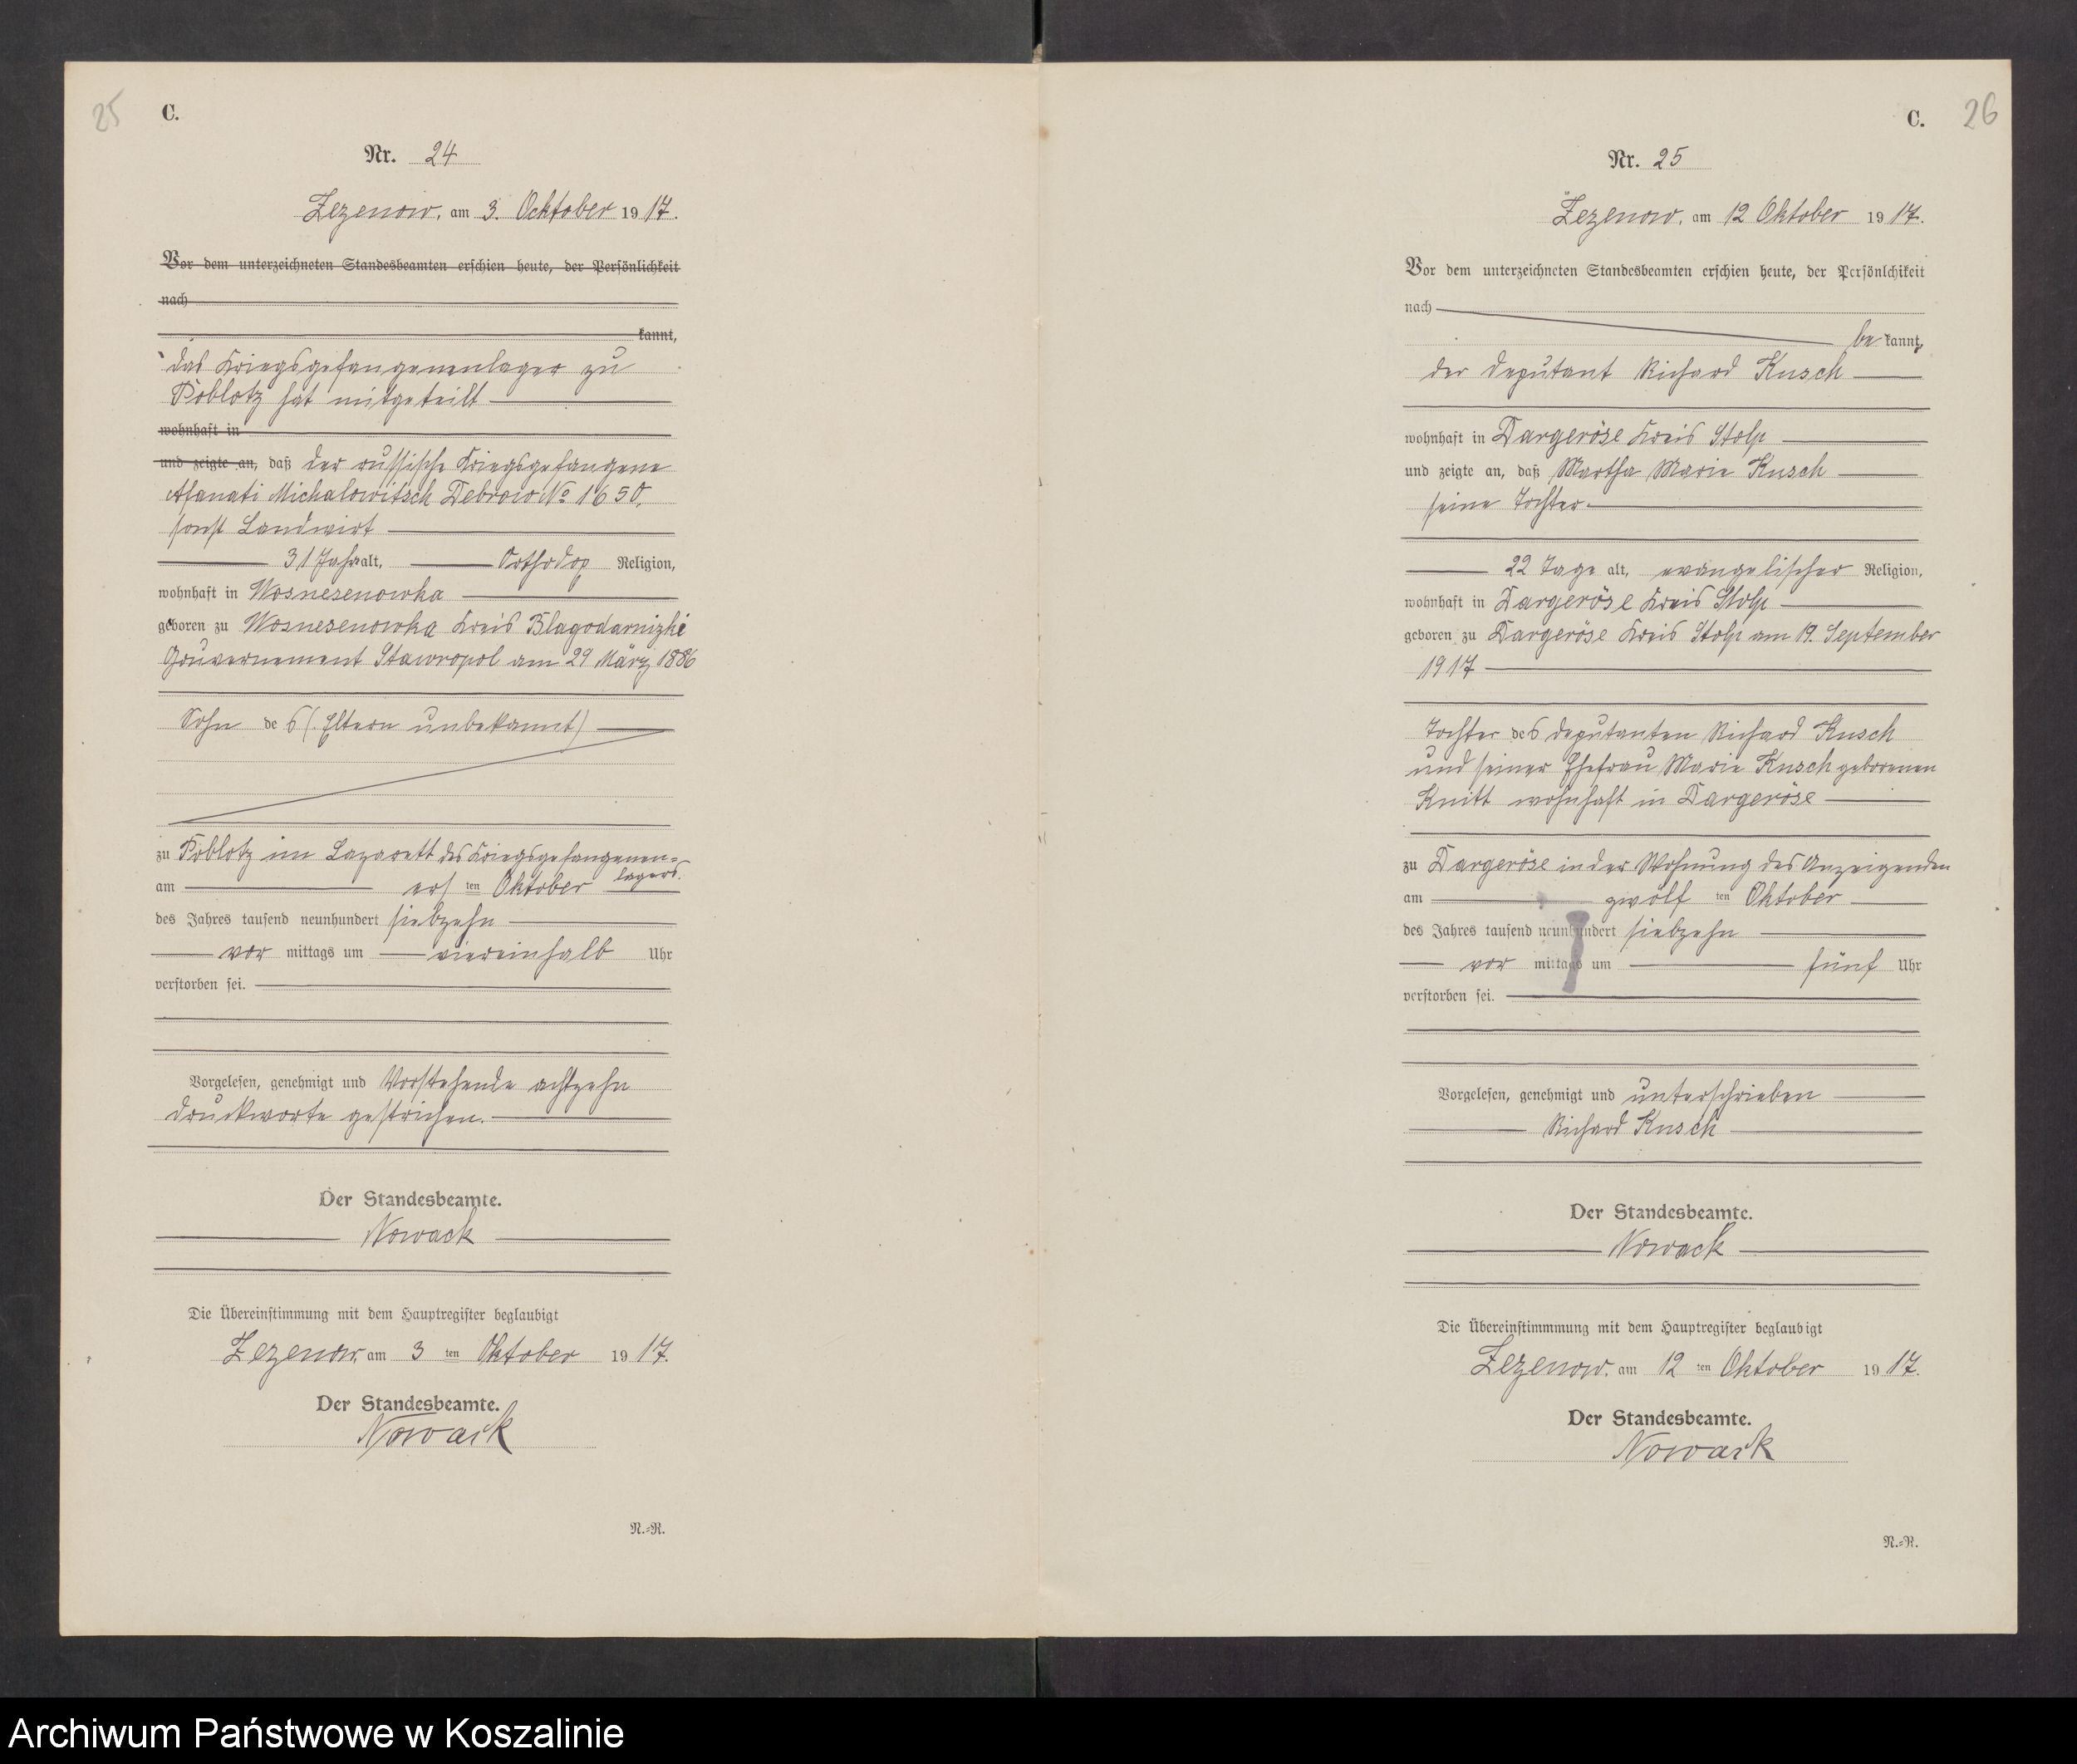 25
C.
Nr. 24
Zezenow, am 3. Ocktober 1917.
Vor dem unterzeichneten Standesbeamten erschien heute, der Persönlichkeit
nach
kannt,
das Kriegsgefangenenlager zu
Poblotz hat mitgeteilt
wohnhaft in
und zeigte an, daß der russische Kriegsgefangene
Afanati Michalowitsch Debrow No 1650.
sonst Landwirt
31 Jahr alt, Orthodox Religion,
wohnhaft in Wosnesenowka
geboren zu Wosnesenowka Kreis Blagodarnizki
Gouvernement Stawropol am 29 März 1886
Sohn des (. Eltern unbekannt)
zu Poblotz im Lazarett des Kriegsgefangenen-
lagers.
am ersten Oktober
des Jahres tausend neunhundert siebzehn
vor mittags um viereinhalb Uhr
verstorben sei.
Vorgelesen, genehmigt und Vorstehende achtzehn
Druckworte gestrichen.
Der Standesbeamte.
Nowack
Die Übereinstimmung mit dem Hauptregister beglaubigt
Zezenow, am 3 ten Oktober 1917.
Der Standesbeamte.
Nowack
N.=R.
C. 26
Nr. 25
Zezenow, am 12 Oktober 1917.
Vor dem unterzeichneten Standesbeamten erschien heute, der Persönlchikeit
nach
be kannt,
der Deputant Richard Kusch
wohnhaft in Dargeröse Kreis Stolp
und zeigte an, daß Martha Marie Kusch
seine Tochter
22 Tage alt, evangelischer Religion,
wohnhaft in Dargeröse Kreis Stolp
geboren zu Dargeröse Kreis Stolp am 19. September
1917
Tochter des Deputanten Richard Kusch
und seiner Ehefrau Marie Kusch geborenen
Knitt wohnhaft in Dargeröse
zu Dargeröse in der Wohnung des Anzeigenden
am zwölf ten Oktober
des Jahres tausend neunhundert siebzehn
vor mittags um fünf Uhr
verstorben sei.
Vorgelesen, genehmigt und unterschrieben
Richard Kusch
Der Standesbeamte.
Nowack
Die Übereinstimmmung mit dem Hauptregister beglaubigt
Zezenow, am 12 ten Oktober 1917.
Der Standesbeamte.
Nowack
N.=R.
Archiwum Państwowe w Koszalinie